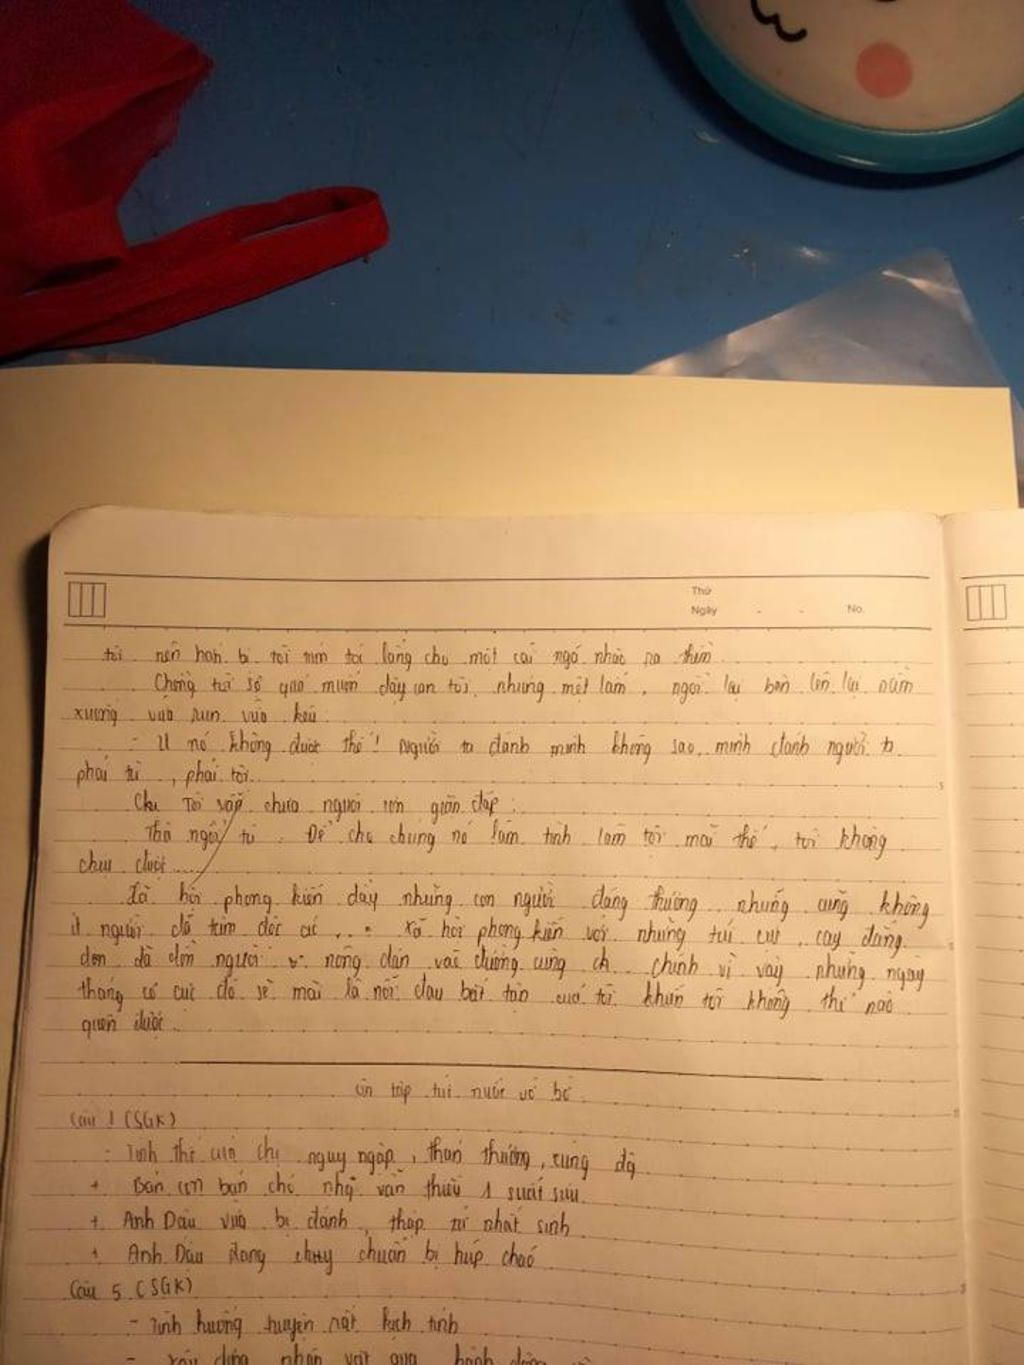 Thứ
Ngày - - No.
tôi nên hơn bị tôi túm tới lẳng cho một cái ngã nhào ra thềm
Chồng tôi sợ quá muốn dậy can tôi, nhưng mệt lắm, ngồi lại bên lên lại nằm
xuống vừa run vừa kêu
- U nó không được thế! Người ta đánh mình không sao, mình đánh người ta
phải tù, phải tội.
Chị Tôi vẫn chưa nguôi cơn giận đáp:
Thà ngồi tù. Để cho chúng nó làm tình làm tội mãi thế, tôi không
chịu được...
Xã hội phong kiến đầy những con người đáng thương nhưng cũng không
ít người độc ác... Xã hội phong kiến với những tủi cực, cay đắng
dồn đã dồn người nông dân vào đường cùng ch. chính vì vậy những ngày
tháng cơ cực đó sẽ mãi là nỗi đau bất tận của tôi khiến tôi không thể nào
quên được.
ôn tập tức nước vỡ bờ
Câu 1 (SGK)
- Tình thế của chị nguy ngập, thảm thương, cùng độ
+ Bán con bán chó nhà vẫn thiếu 1 suất sưu
+ Anh Dậu vừa bị đánh, thập tử nhất sinh
+ Anh Dậu đang chuẩn bị húp cháo
Câu 5 (SGK)
- Tình huống truyện rất kịch tính
- xây dựng nhân vật qua hành động